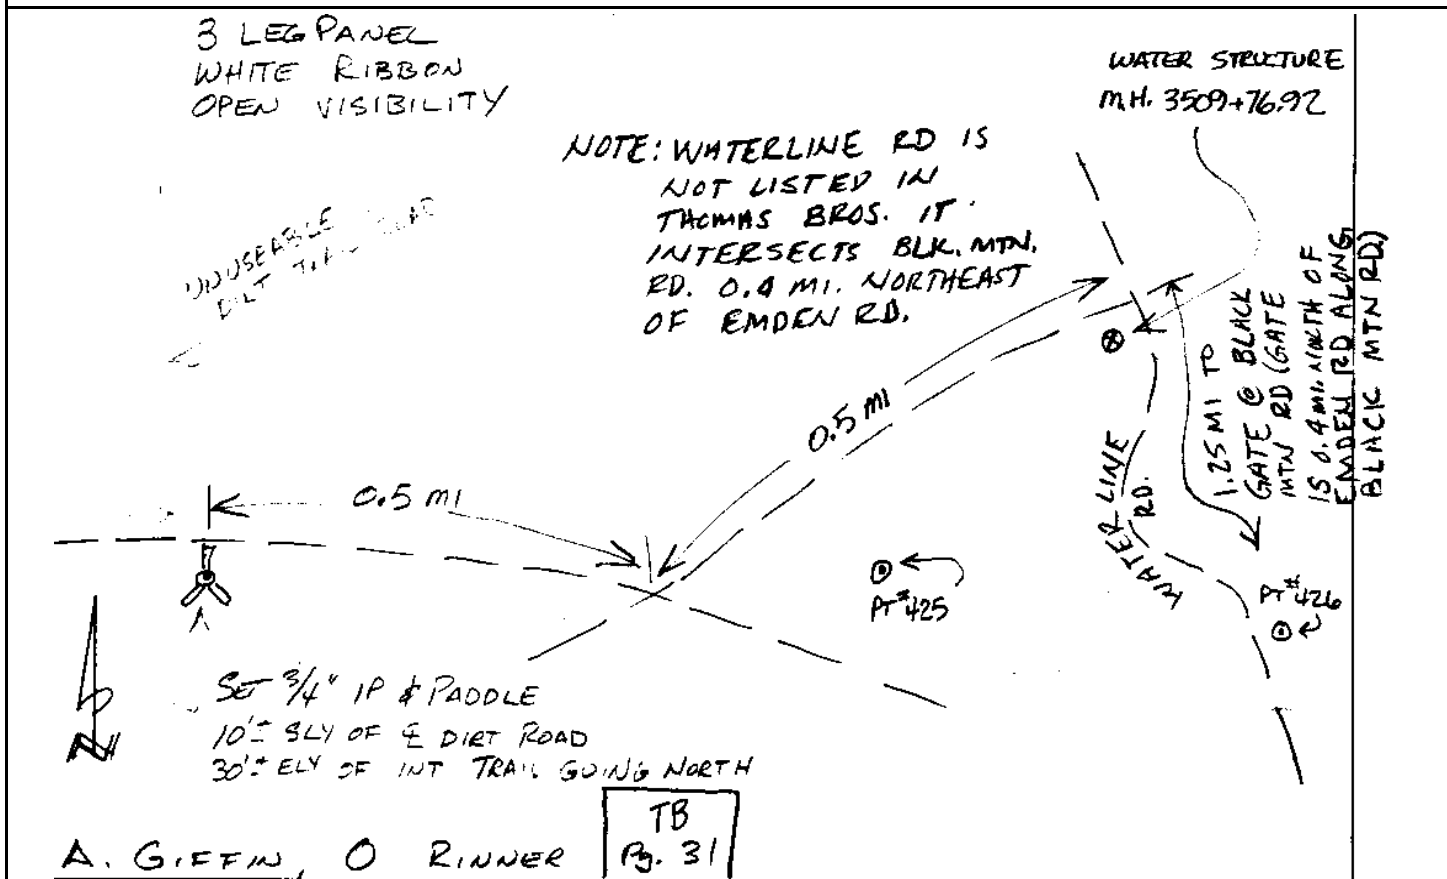 3 LEG PANEL
WHITE RIBBON
OPEN VISIBILITY
WATER STRUCTURE
M.H. 3509+76.92
NOTE: WATERLINE RD IS
NOT LISTED IN
THOMAS BROS. IT
INTERSECTS BLK. MTN.
RD. 0.4 MI. NORTHEAST
OF EMDEN RD.
UNUSEABLE
DIRT TRAIL ROAD
0.5 MI
0.5 MI
1.25 MI TO
GATE @ BLACK
MTN RD (GATE
IS 0.4 MI. NORTH OF
EMDEN RD ALONG
BLACK MTN RD)
WATER LINE
RD.
PT #425
PT #426
N
SET 3/4" IP & PADDLE
10'± SLY OF ℄ DIRT ROAD
30'± ELY OF INT TRAIL GOING NORTH
TB
Pg. 31
A. GIFFIN, O RINNER